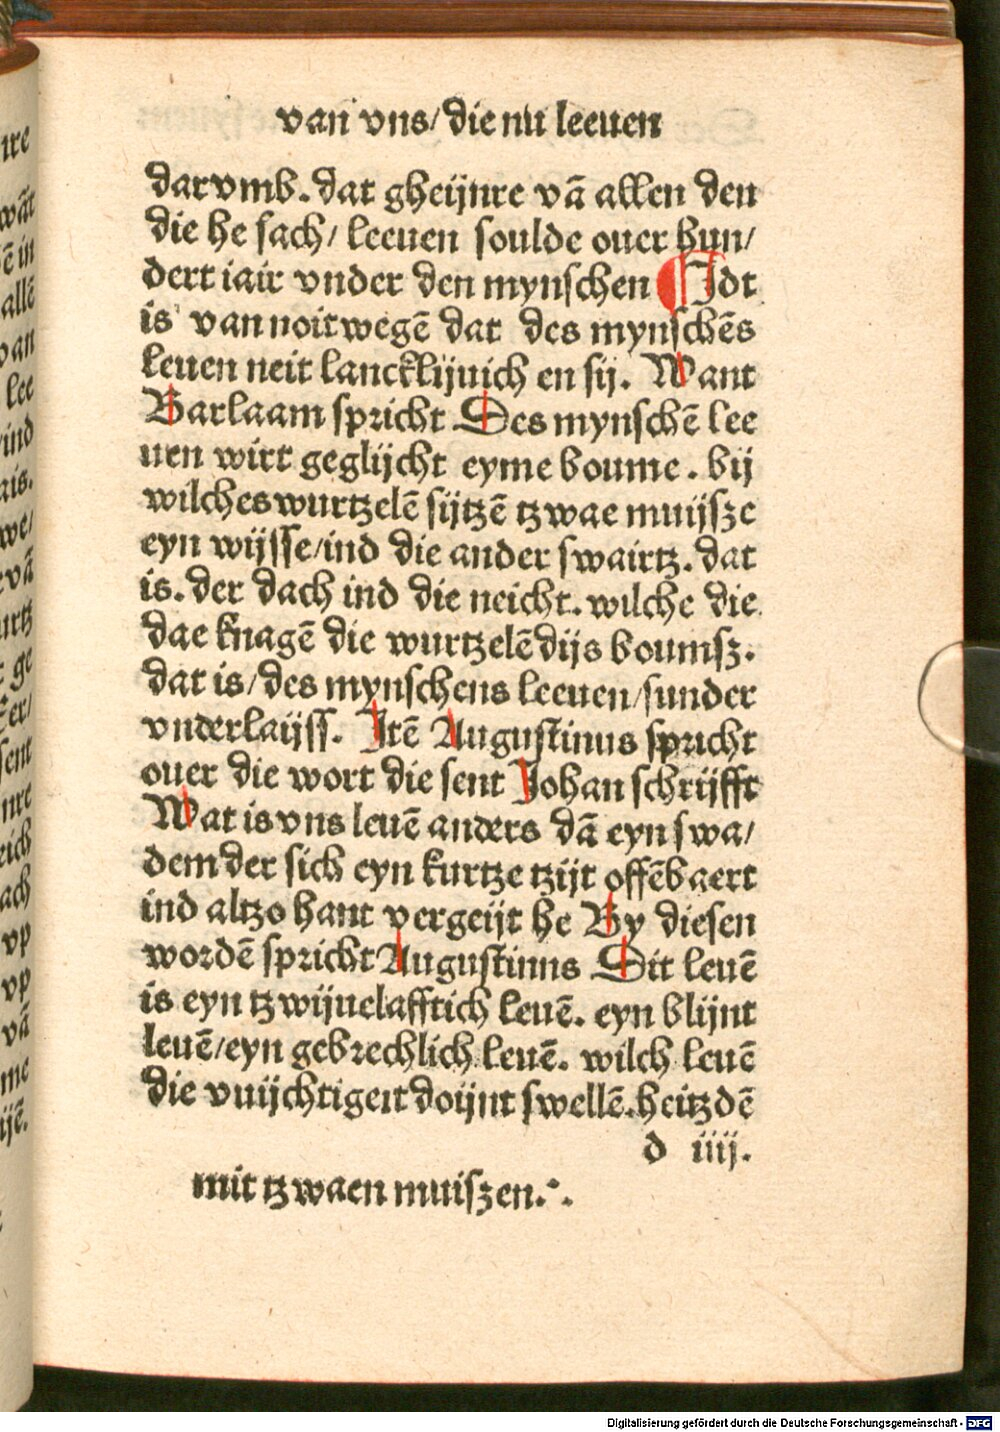 van vns/ die nu leeuen
darvmb. dat gheijnre vā allen den
die he sach/ leeuen soulde ouer hun/
dert iair vnder den mynschen ¶ Idt
is van noitwegē dat des mynschēs
leuen neit lancklijuich en sij. Want
Barlaam spricht Des mynschē lee
uen wirt geglijcht eyme boume. bij
wilches wurtzelē sijtzē tzwae muijsze
eyn wijsse/ ind die ander swairtz. dat
is. der dach ind die neicht. wilche die
dae knagē die wurtzelē dijs boumsz.
dat is/ des mynschens leeuen/ sunder
vnderlaijss. Itē Augustinus spricht
ouer die wort die sent Johan schrijfft
Wat is vns leuē anders dā eyn swa/
dem der sich eyn kurtze tzijt offēbaert
ind altzo hant vergeijt he By diesen
wordē spricht Augustinus Dit leuē
is eyn tzwijuelafftich leuē. eyn blijnt
leuē/ eyn gebrechlich leuē. wilch leuē
die vuijchtigeit doijnt swellē. heitz dē
d iiij.
mit tzwaen muiszen.
ire
wāt
ē in
allē
van
lee
ind
ais.
we/
vā
urtz
ge
er/
sent
nre
eich
ach
vp
vp
vā
me
ijē.
Digitalisierung gefördert durch die Deutsche Forschungsgemeinschaft - DFG